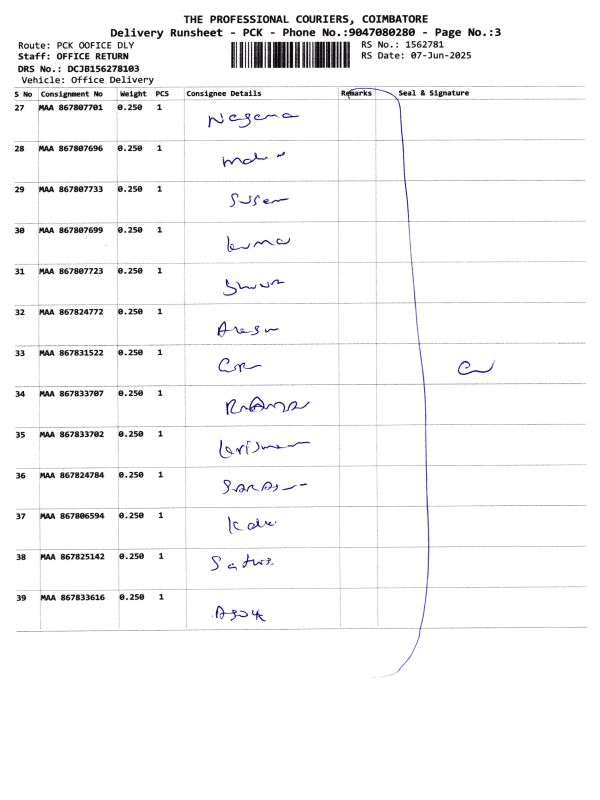 THE PROFESSIONAL COURIERS, COIMBATORE
Delivery Runsheet - PCK - Phone No.:9047080280 - Page No.:3
Route: PCK OOFICE DLY RS No.: 1562781
Staff: OFFICE RETURN RS Date: 07-Jun-2025
DRS No.: DCJB156278103
Vehicle: Office Delivery
S No Consignment No Weight PCS Consignee Details Remarks Seal & Signature
27 MAA 867807701 0.250 1
28 MAA 867807696 0.250 1
29 MAA 867807733 0.250 1
30 MAA 867807699 0.250 1
31 MAA 867807723 0.250 1
32 MAA 867824772 0.250 1
33 MAA 867831522 0.250 1
34 MAA 867833707 0.250 1
35 MAA 867833702 0.250 1
36 MAA 867824784 0.250 1
37 MAA 867806594 0.250 1
38 MAA 867825142 0.250 1
39 MAA 867833616 0.250 1